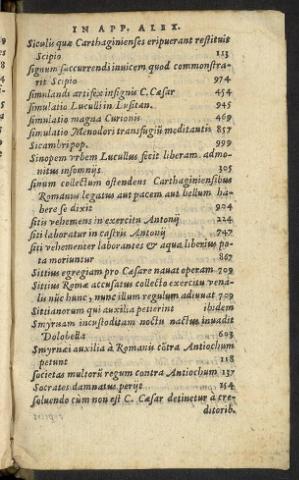 IN APP. ALEX.
Siculis quæ Carthaginienses eripuerant restituit
Scipio 113
signum succurrendi inuicem quod commonstra-
rit Scipio 974
simulandi artifex insignis C. Cæsar 454
simulatio Luculli in Lusitan. 945
simulatio magna Curionis 469
simulatio Menodori transfugiũ meditantis 857
Sicambri pop. 999
Sinopem vrbem Lucullus fecit liberam admo-
nitus insomnijs 305
sinum collectum ostendens Carthaginiensibus
Romanus legatus aut pacem aut bellum ha-
bere se dixit 904
sitis vehemens in exercitu Antonij 224
siti laboratur in castris Antonij 747
siti vehementer laborantes & aqua liberius po-
ta moriuntur 867
Sittius egregiam pro Cæsare nauat operam 709
Sittius Roma accusatus collecto exercitu vena-
lis nũc hunc, nunc illum regulum adiuuat 709
Sittianorum qui auxilia petierint ibidem
Smyrnam incustoditam noctu nactus inuadit
Dolobella 603
Smyrnæi auxilia à Romanis cõtra Antiochum
petunt 118
societas multorũ regum contra Antiochum 137
Socrates damnatus perijt 154
soluendo cùm non est C. Cæsar detinetur à cre-
ditorib.